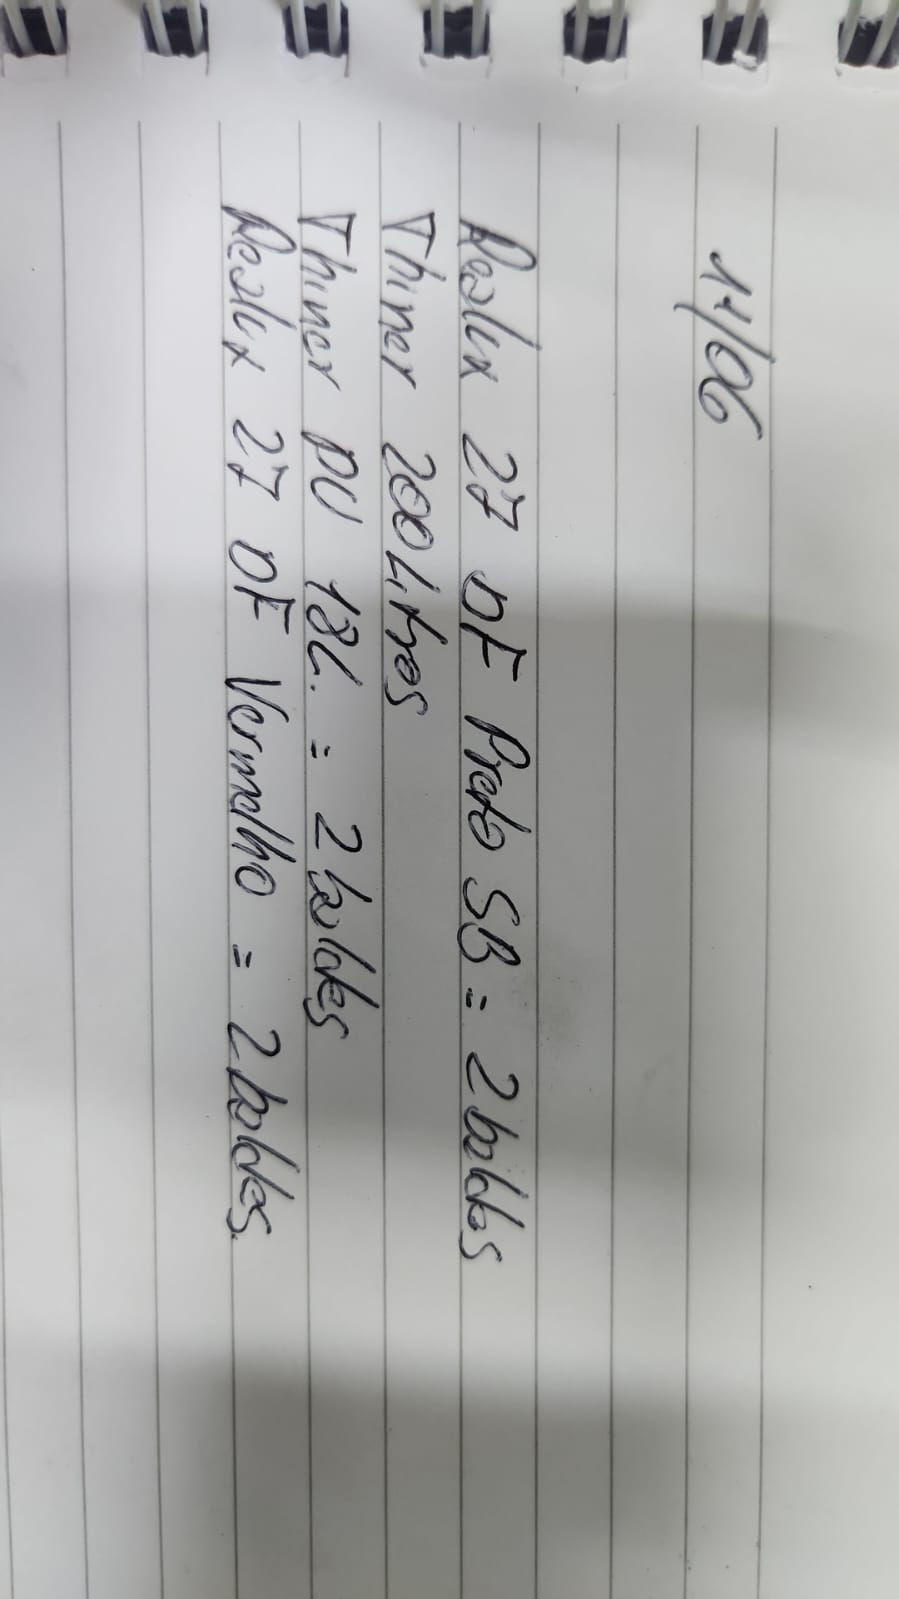 11/06
Realux 27 DF Preto SB = 2 baldes
Thiner 200 Litros
Thiner PU 18L. = 2 baldes
Realux 27 DF Vermelho = 2 baldes.